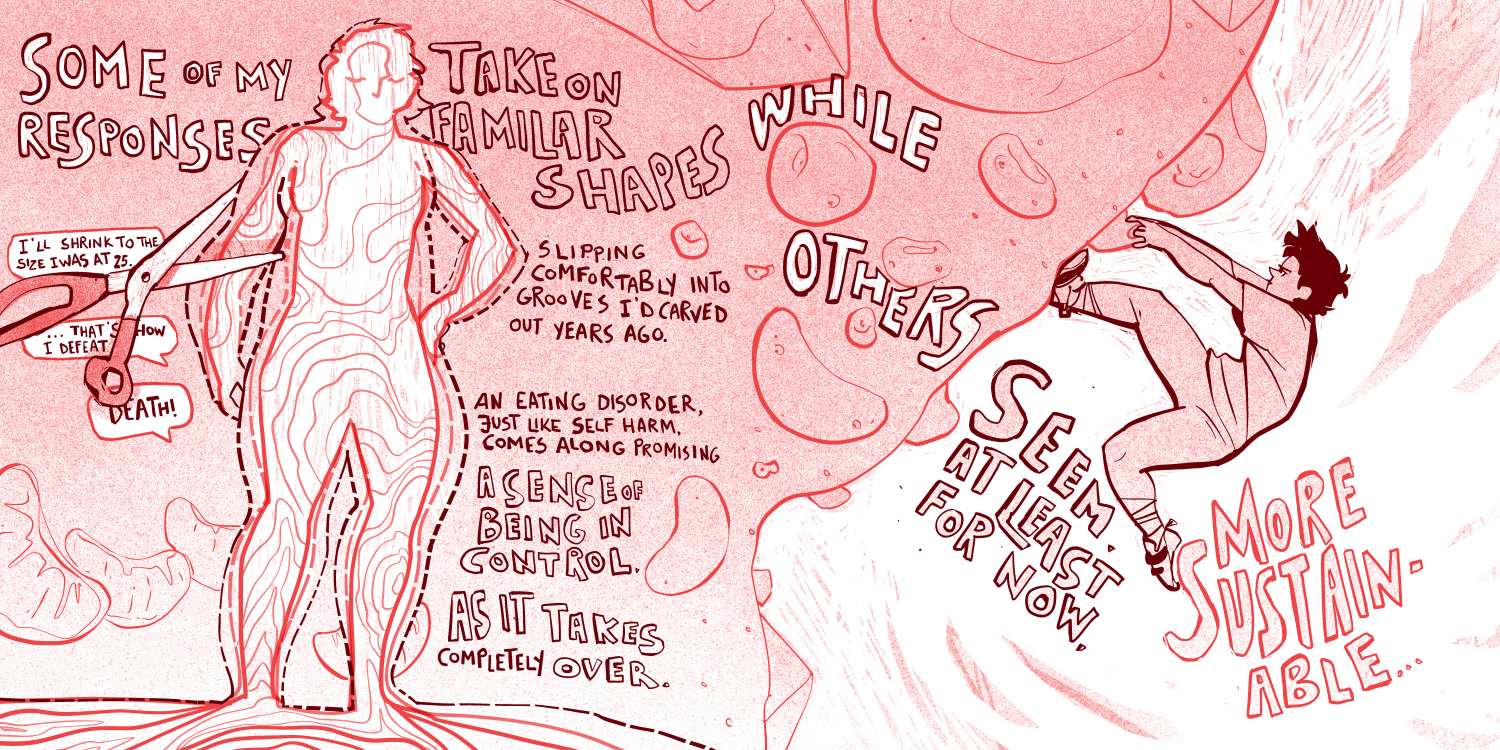 SOME OF MY
RESPONSES
TAKE ON
FAMILAR
SHAPES
I'LL SHRINK TO THE
SIZE I WAS AT 25.
...THAT'S HOW
I DEFEAT
DEATH!
SLIPPING
COMFORTABLY INTO
GROOVES I'D CARVED
OUT YEARS AGO.
AN EATING DISORDER,
JUST LIKE SELF HARM,
COMES ALONG PROMISING
A SENSE OF
BEING IN
CONTROL.
AS IT TAKES
COMPLETELY OVER.
WHILE
OTHERS
SEEM,
AT LEAST
FOR NOW,
MORE
SUSTAIN-
ABLE...